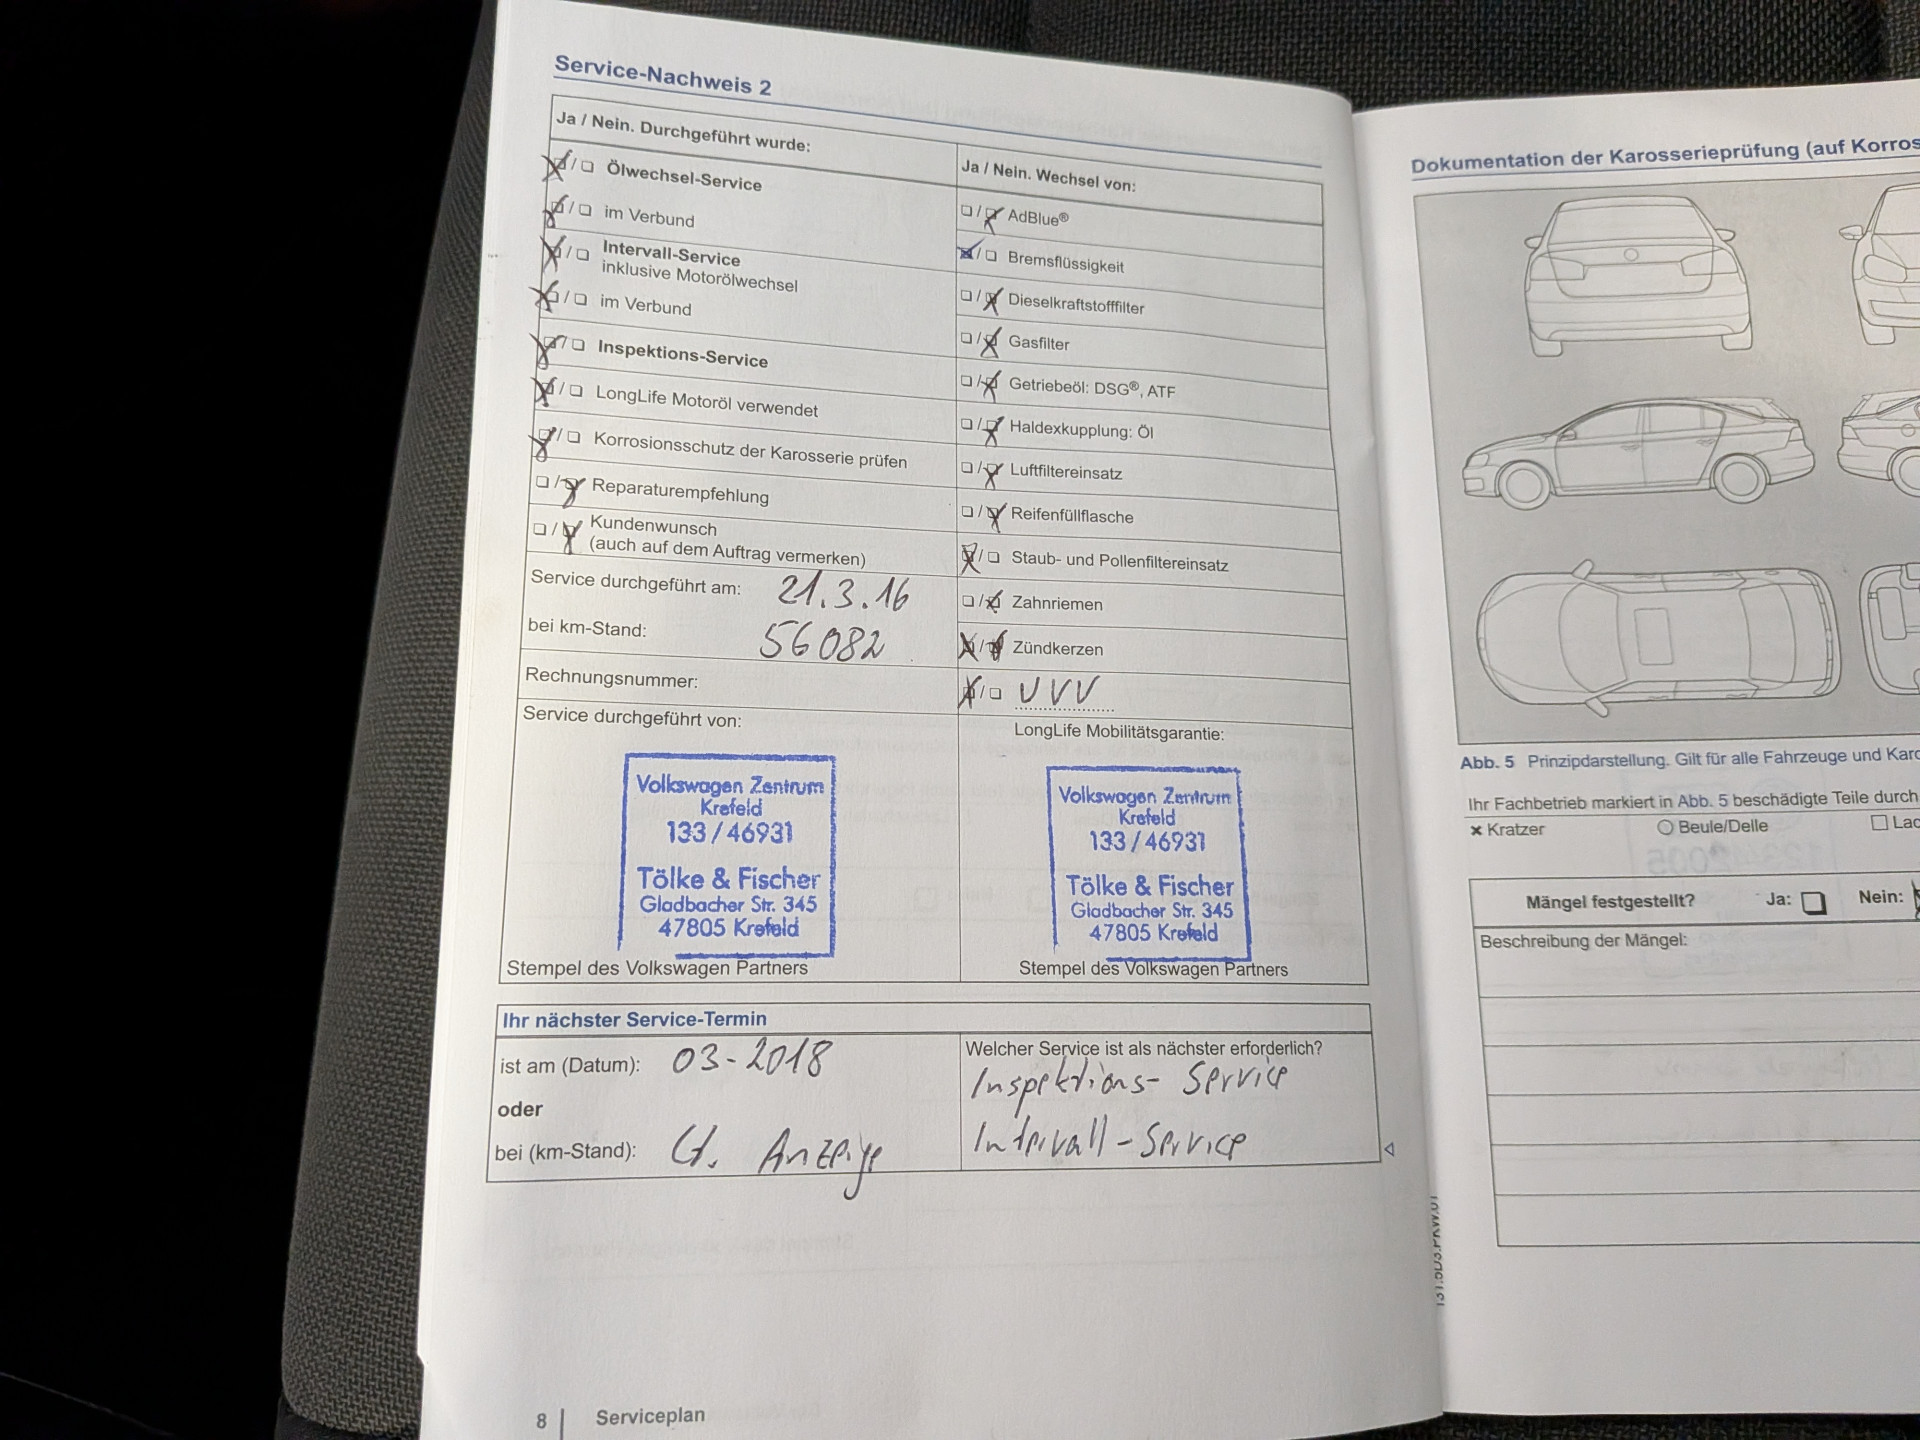 Service-Nachweis 2
Ja / Nein. Durchgeführt wurde:
Ölwechsel-Service
im Verbund
Intervall-Service
inklusive Motorölwechsel
im Verbund
Inspektions-Service
LongLife Motoröl verwendet
Korrosionsschutz der Karosserie prüfen
Reparaturempfehlung
Kundenwunsch
(auch auf dem Auftrag vermerken)
Service durchgeführt am: 21.3.16
bei km-Stand: 56082
Rechnungsnummer:
Service durchgeführt von:
Volkswagen Zentrum
Krefeld
133/46931
Tölke & Fischer
Gladbacher Str. 345
47805 Krefeld
Stempel des Volkswagen Partners
Ja / Nein. Wechsel von:
AdBlue®
Bremsflüssigkeit
Dieselkraftstofffilter
Gasfilter
Getriebeöl: DSG®, ATF
Haldexkupplung: Öl
Luftfiltereinsatz
Reifenfüllflasche
Staub- und Pollenfiltereinsatz
Zahnriemen
Zündkerzen
UVV
LongLife Mobilitätsgarantie:
Volkswagen Zentrum
Krefeld
133/46931
Tölke & Fischer
Gladbacher Str. 345
47805 Krefeld
Stempel des Volkswagen Partners
Ihr nächster Service-Termin
ist am (Datum): 03-2018
oder
bei (km-Stand): Lt. Anzeige
Welcher Service ist als nächster erforderlich?
Inspektions- Service
Intervall-Service
8 | Serviceplan
Dokumentation der Karosserieprüfung (auf Korros
Abb. 5 Prinzipdarstellung. Gilt für alle Fahrzeuge und Karo
Ihr Fachbetrieb markiert in Abb. 5 beschädigte Teile durch
Kratzer Beule/Delle Lac
Mängel festgestellt? Ja: Nein:
Beschreibung der Mängel: